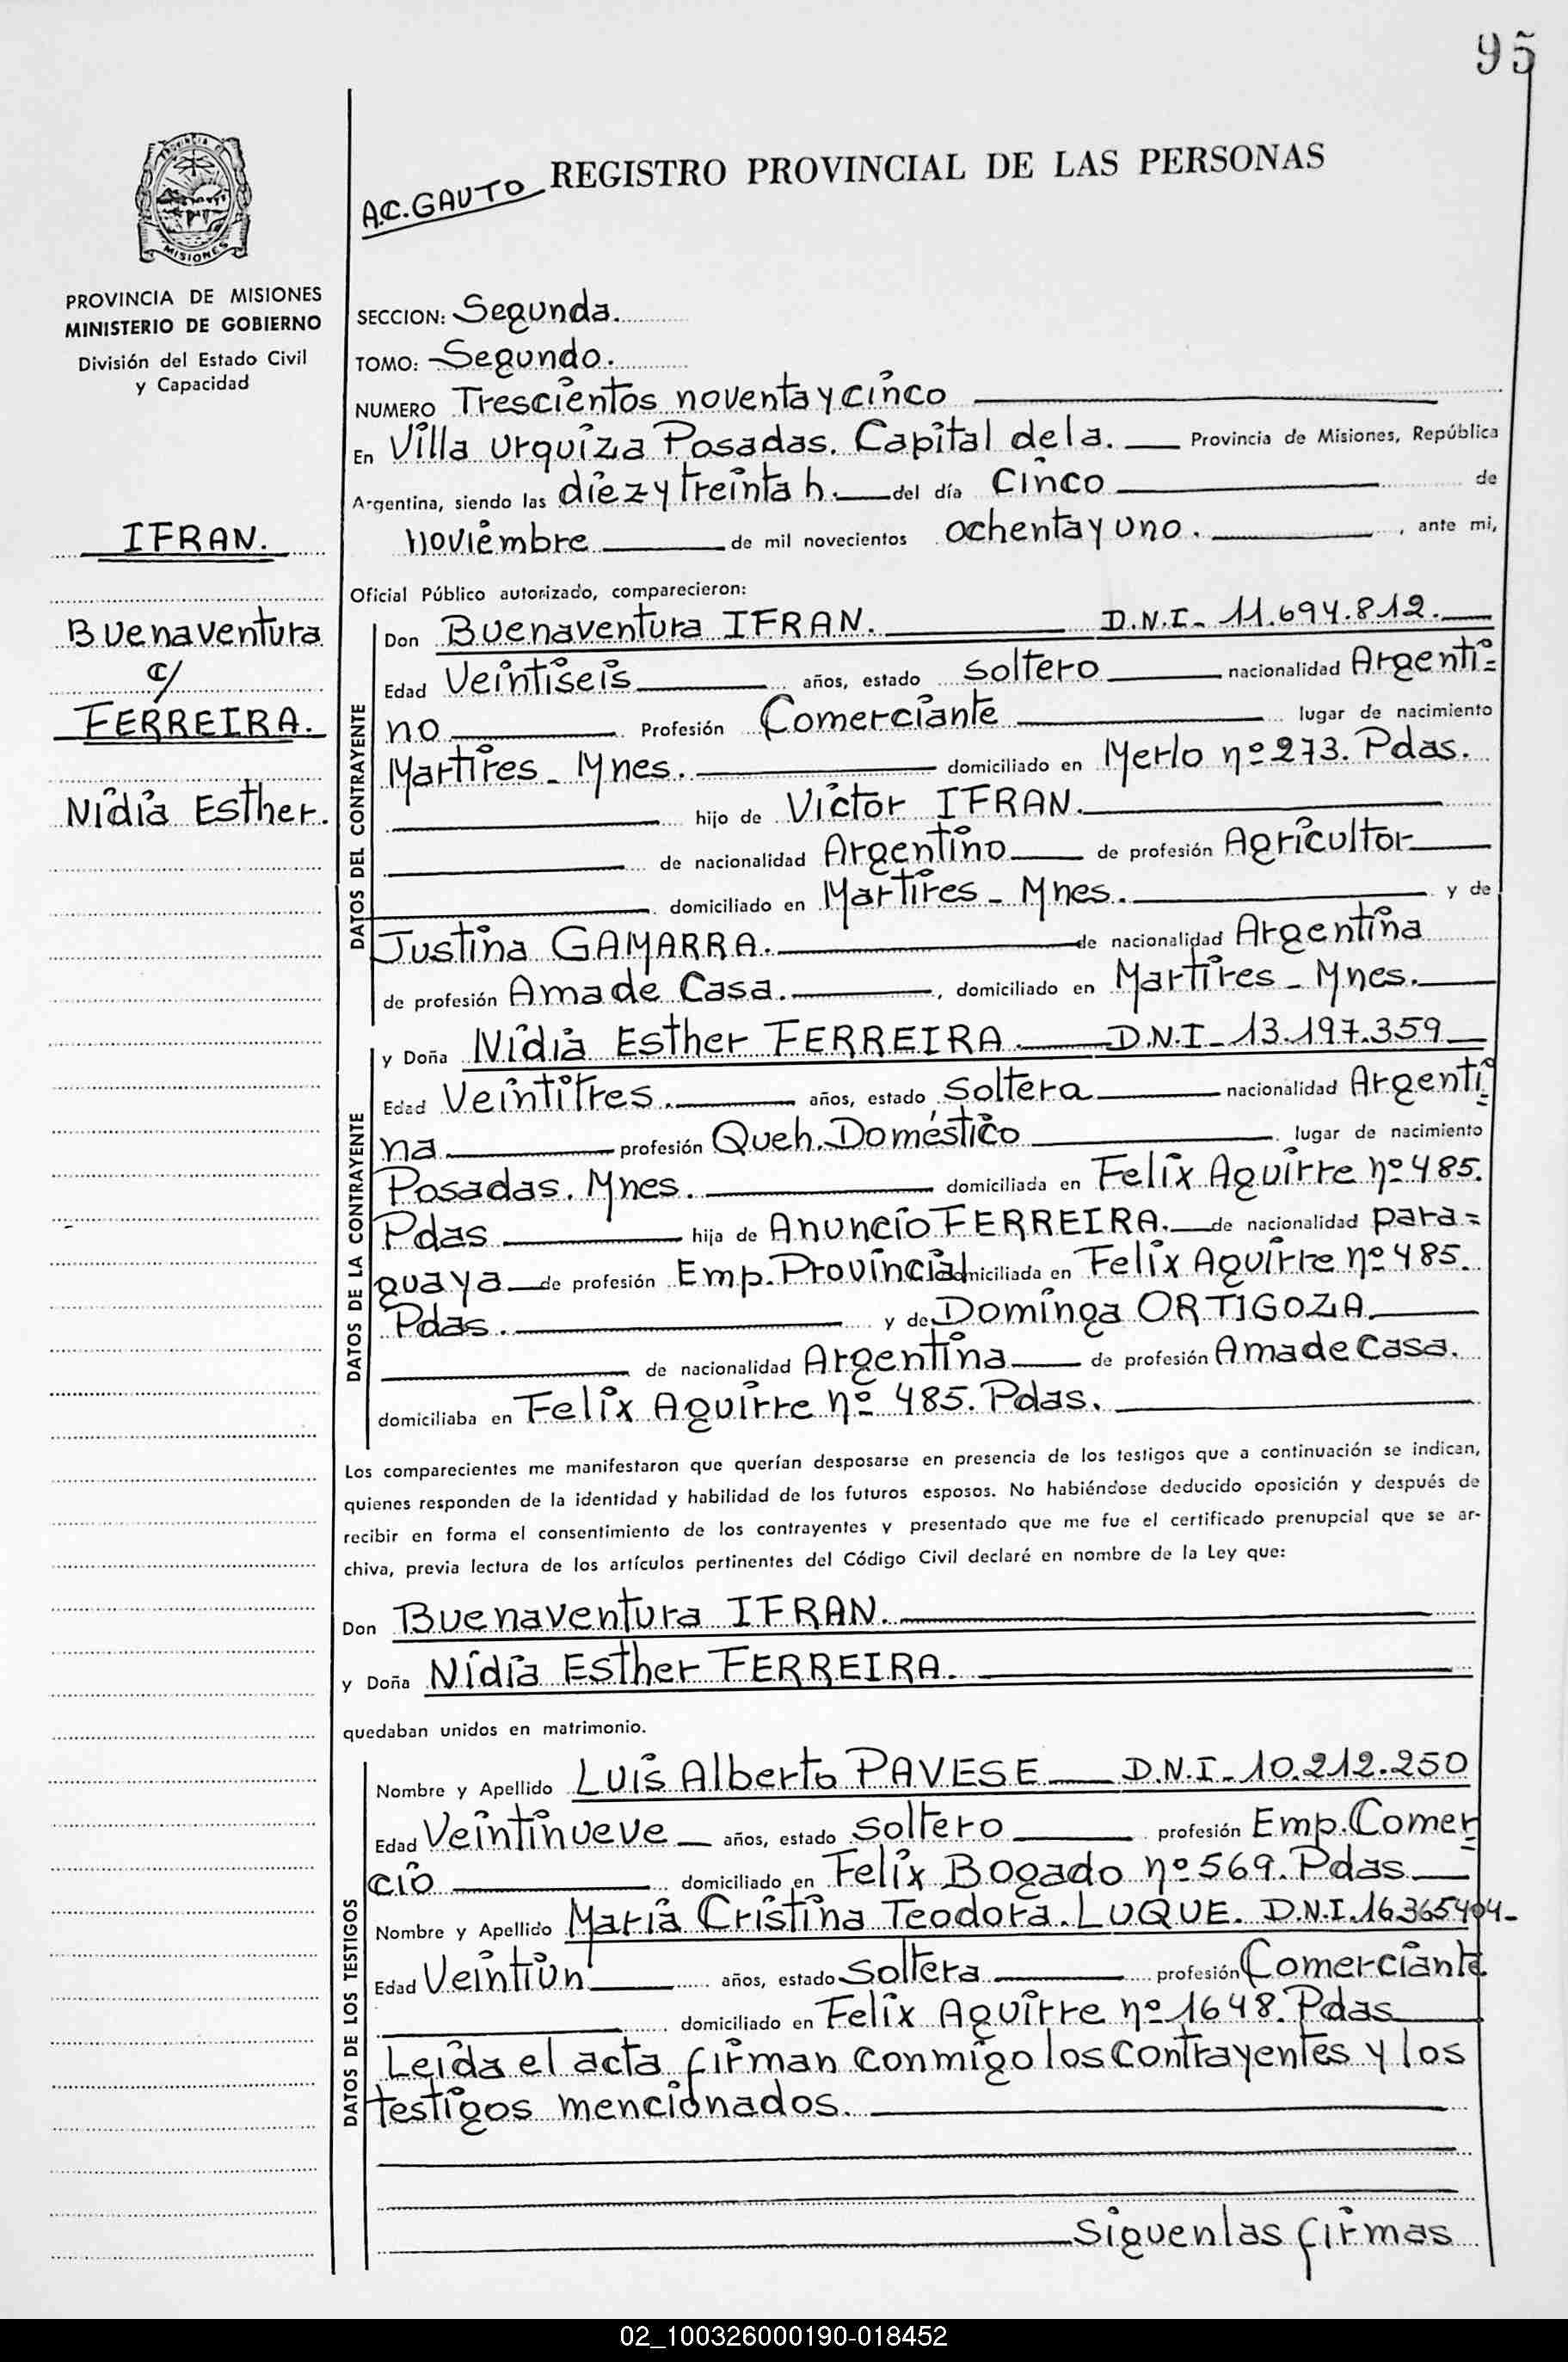 95
PROVINCIA DE
MISIONES
PROVINCIA DE MISIONES
MINISTERIO DE GOBIERNO
División del Estado Civil
y Capacidad
IFRAN.
Buenaventura
c/
FERREIRA.
Nidia Esther.
A.C. GAUTO
REGISTRO PROVINCIAL DE LAS PERSONAS
SECCION: Segunda.
TOMO: Segundo.
NUMERO Trescientos noventa y cinco
En Villa Urquiza Posadas. Capital de la. Provincia de Misiones, República
Argentina, siendo las diez y treinta h. del día Cinco de
noviembre de mil novecientos ochenta y uno. , ante mi,
Oficial Público autorizado, comparecieron:
DATOS DEL CONTRAYENTE
Don Buenaventura IFRAN. D.N.I- 11.694.812.
Edad Veintiseis años, estado soltero nacionalidad Argenti=
no Profesión Comerciante lugar de nacimiento
Martires - Mnes. domiciliado en Merlo nº 273. Pdas.
hijo de Victor IFRAN.
de nacionalidad Argentino de profesión Agricultor
domiciliado en Martires - Mnes. y de
Justina GAMARRA. de nacionalidad Argentina
de profesión Ama de Casa. , domiciliado en Martires - Mnes.
DATOS DE LA CONTRAYENTE
y Doña Nidia Esther FERREIRA. D.N.I- 13.197.359
Edad Veintitres. años, estado Soltera nacionalidad Argenti=
na profesión Queh. Doméstico lugar de nacimiento
Posadas. Mnes. domiciliada en Felix Aguirre nº 485.
Pdas hija de Anuncio FERREIRA. de nacionalidad para=
guaya de profesión Emp. Provincial domiciliada en Felix Aguirre nº 485.
Pdas. y de Dominga ORTIGOZA.
de nacionalidad Argentina de profesión Ama de Casa.
domiciliaba en Felix Aguirre nº 485. Pdas.
Los comparecientes me manifestaron que querían desposarse en presencia de los testigos que a continuación se indican,
quienes responden de la identidad y habilidad de los futuros esposos. No habiéndose deducido oposición y después de
recibir en forma el consentimiento de los contrayentes y presentado que me fue el certificado prenupcial que se ar-
chiva, previa lectura de los artículos pertinentes del Código Civil declaré en nombre de la Ley que:
Don Buenaventura IFRAN.
y Doña Nidia Esther FERREIRA.
quedaban unidos en matrimonio.
DATOS DE LOS TESTIGOS
Nombre y Apellido Luis Alberto PAVESE D.N.I- 10.212.250
Edad Veintinueve años, estado soltero profesión Emp. Comer=
cio domiciliado en Felix Bogado nº 569. Pdas.
Nombre y Apellido Maria Cristina Teodora. LUQUE. D.N.I. 16.365404-
Edad Veintiun años, estado Soltera profesión Comerciante
domiciliado en Felix Aguirre nº 1648. Pdas
Leida el acta firman conmigo los contrayentes y los
testigos mencionados.
Siguen las firmas
02_100326000190-018452